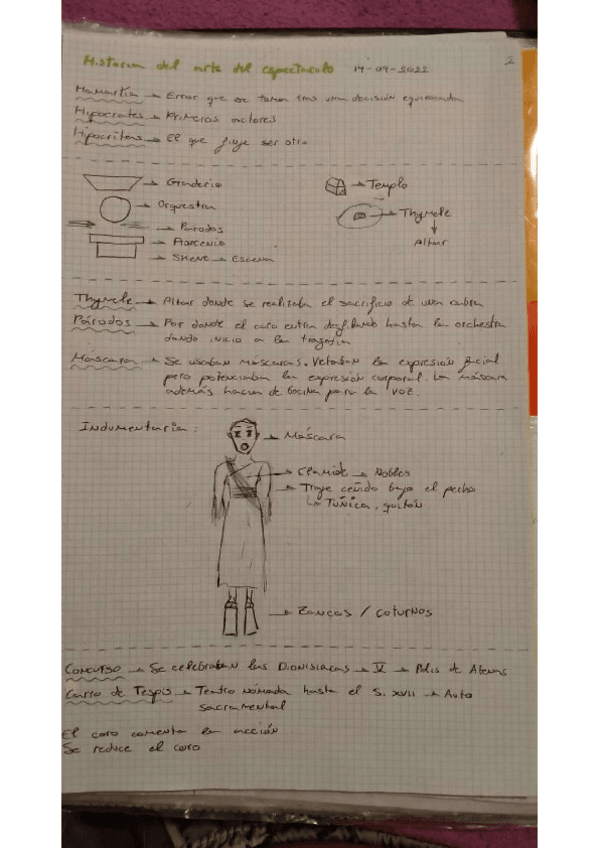 Historia del arte del espectáculo 14-09-2022
2
Hamartía → Error que se toman tras una decisión equivocada
Hipócrates → Primeros actores
Hipócritas → El que finje ser otro
→ Graderío
→ Orquestra
→ Párodos
→ Proscenio
→ Skene → Escena
→ Templo
→ Thymele
↓
Altar
Thymele → Altar donde se realizaba el sacrificio de una cabra
Párodos → Por donde el coro entra desfilando hasta la orchestra
dando inicio a la tragedia
Máscara → Se usaban máscaras. Vetaban la expresión facial
pero potenciaban la expresión corporal. La máscara
además hacían de bocina para la voz.
Indumentaria:
→ Máscara
→ Clámide → Nobles
→ Traje ceñido bajo el pecho
↳ Túnica, quitón
→ Zancos / coturnos
Concurso → Se celebraban las Dionisiacas → V → Polis de Atenas
Carro de Tespis → Teatro nómada hasta el S. XVII → Auto
Sacramental
El coro comenta la acción
Se reduce el coro